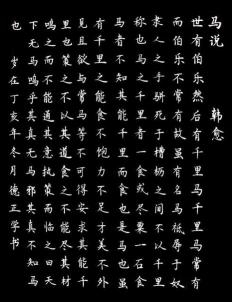 马说 韩愈
世有伯乐然后有千里马千里马常有
而伯乐不常有故虽有名马祗辱于奴
隶人之手骈死于槽枥之间不以千里
称也马之千里者一食或尽粟一石食
马者不知其能千里而食也是马也虽
有千里之能食不饱力不足才美不外
见且欲与常马等不可得安求其能千
里也策之不以其道食之不能尽其材
鸣之而不能通其意执策而临之曰天
下无马呜呼其真无马邪其真不知马
也 岁在丁亥年冬月德正学书